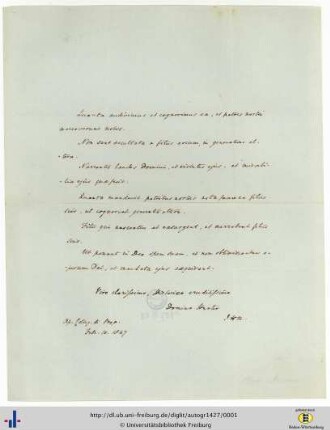 Quanta audivimus et cognovimus ea, et patres nostri
narraverunt nobis.
Non sunt occultata a filiis eorum, in generatione al-
tera.
Narrantes laudes Domini, et virtutes ejus, et mirabi-
lia ejus quae fecit.
Quanta mandavit patribus nostris nota facere ea filiis
suis, et cognoscat generatio altera.
Filii qui nascentur et exsurgent, et narrabunt filiis
suis.
Ut ponant in Deo spem suam, et non obliviscantur o-
perum Dei, et mandata ejus exquirant.
Viro clarissimo,
Domino
Feb. 10. 1847
http://dl.ub.uni-freiburg.de/diglit/autogr1427/0001
© Universitätsbibliothek Freiburg
Baden-Württemberg